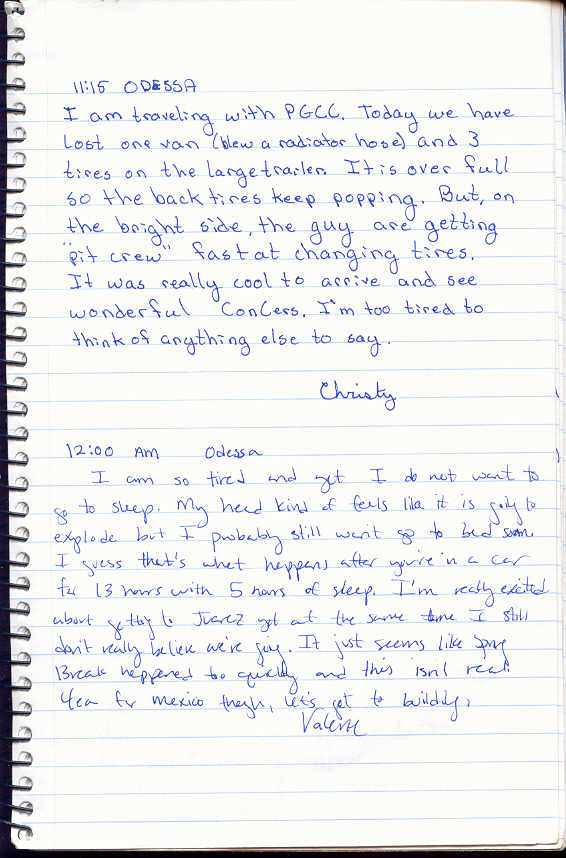 11:15 ODESSA
I am traveling with PGCC. Today we have
lost one van (blew a radiator hose) and 3
tires on the large trailer. It is over full
so the back tires keep popping. But, on
the bright side, the guy are getting
"pit crew" fast at changing tires.
It was really cool to arrive and see
wonderful ConCers. I'm too tired to
think of anything else to say.
Christy
12:00 AM Odessa
I am so tired and yet I do not want to
go to sleep. My head kind of feels like it is going to
explode but I probably still won't go to bed soon.
I guess that's what happens after you're in a car
for 13 hours with 5 hours of sleep. I'm really excited
about getting to Juarez yet at the same time I still
don't really believe we're going. It just seems like Spring
Break happened too quickly and this isn't real.
Yea for Mexico though, let's get to building,
Valerie